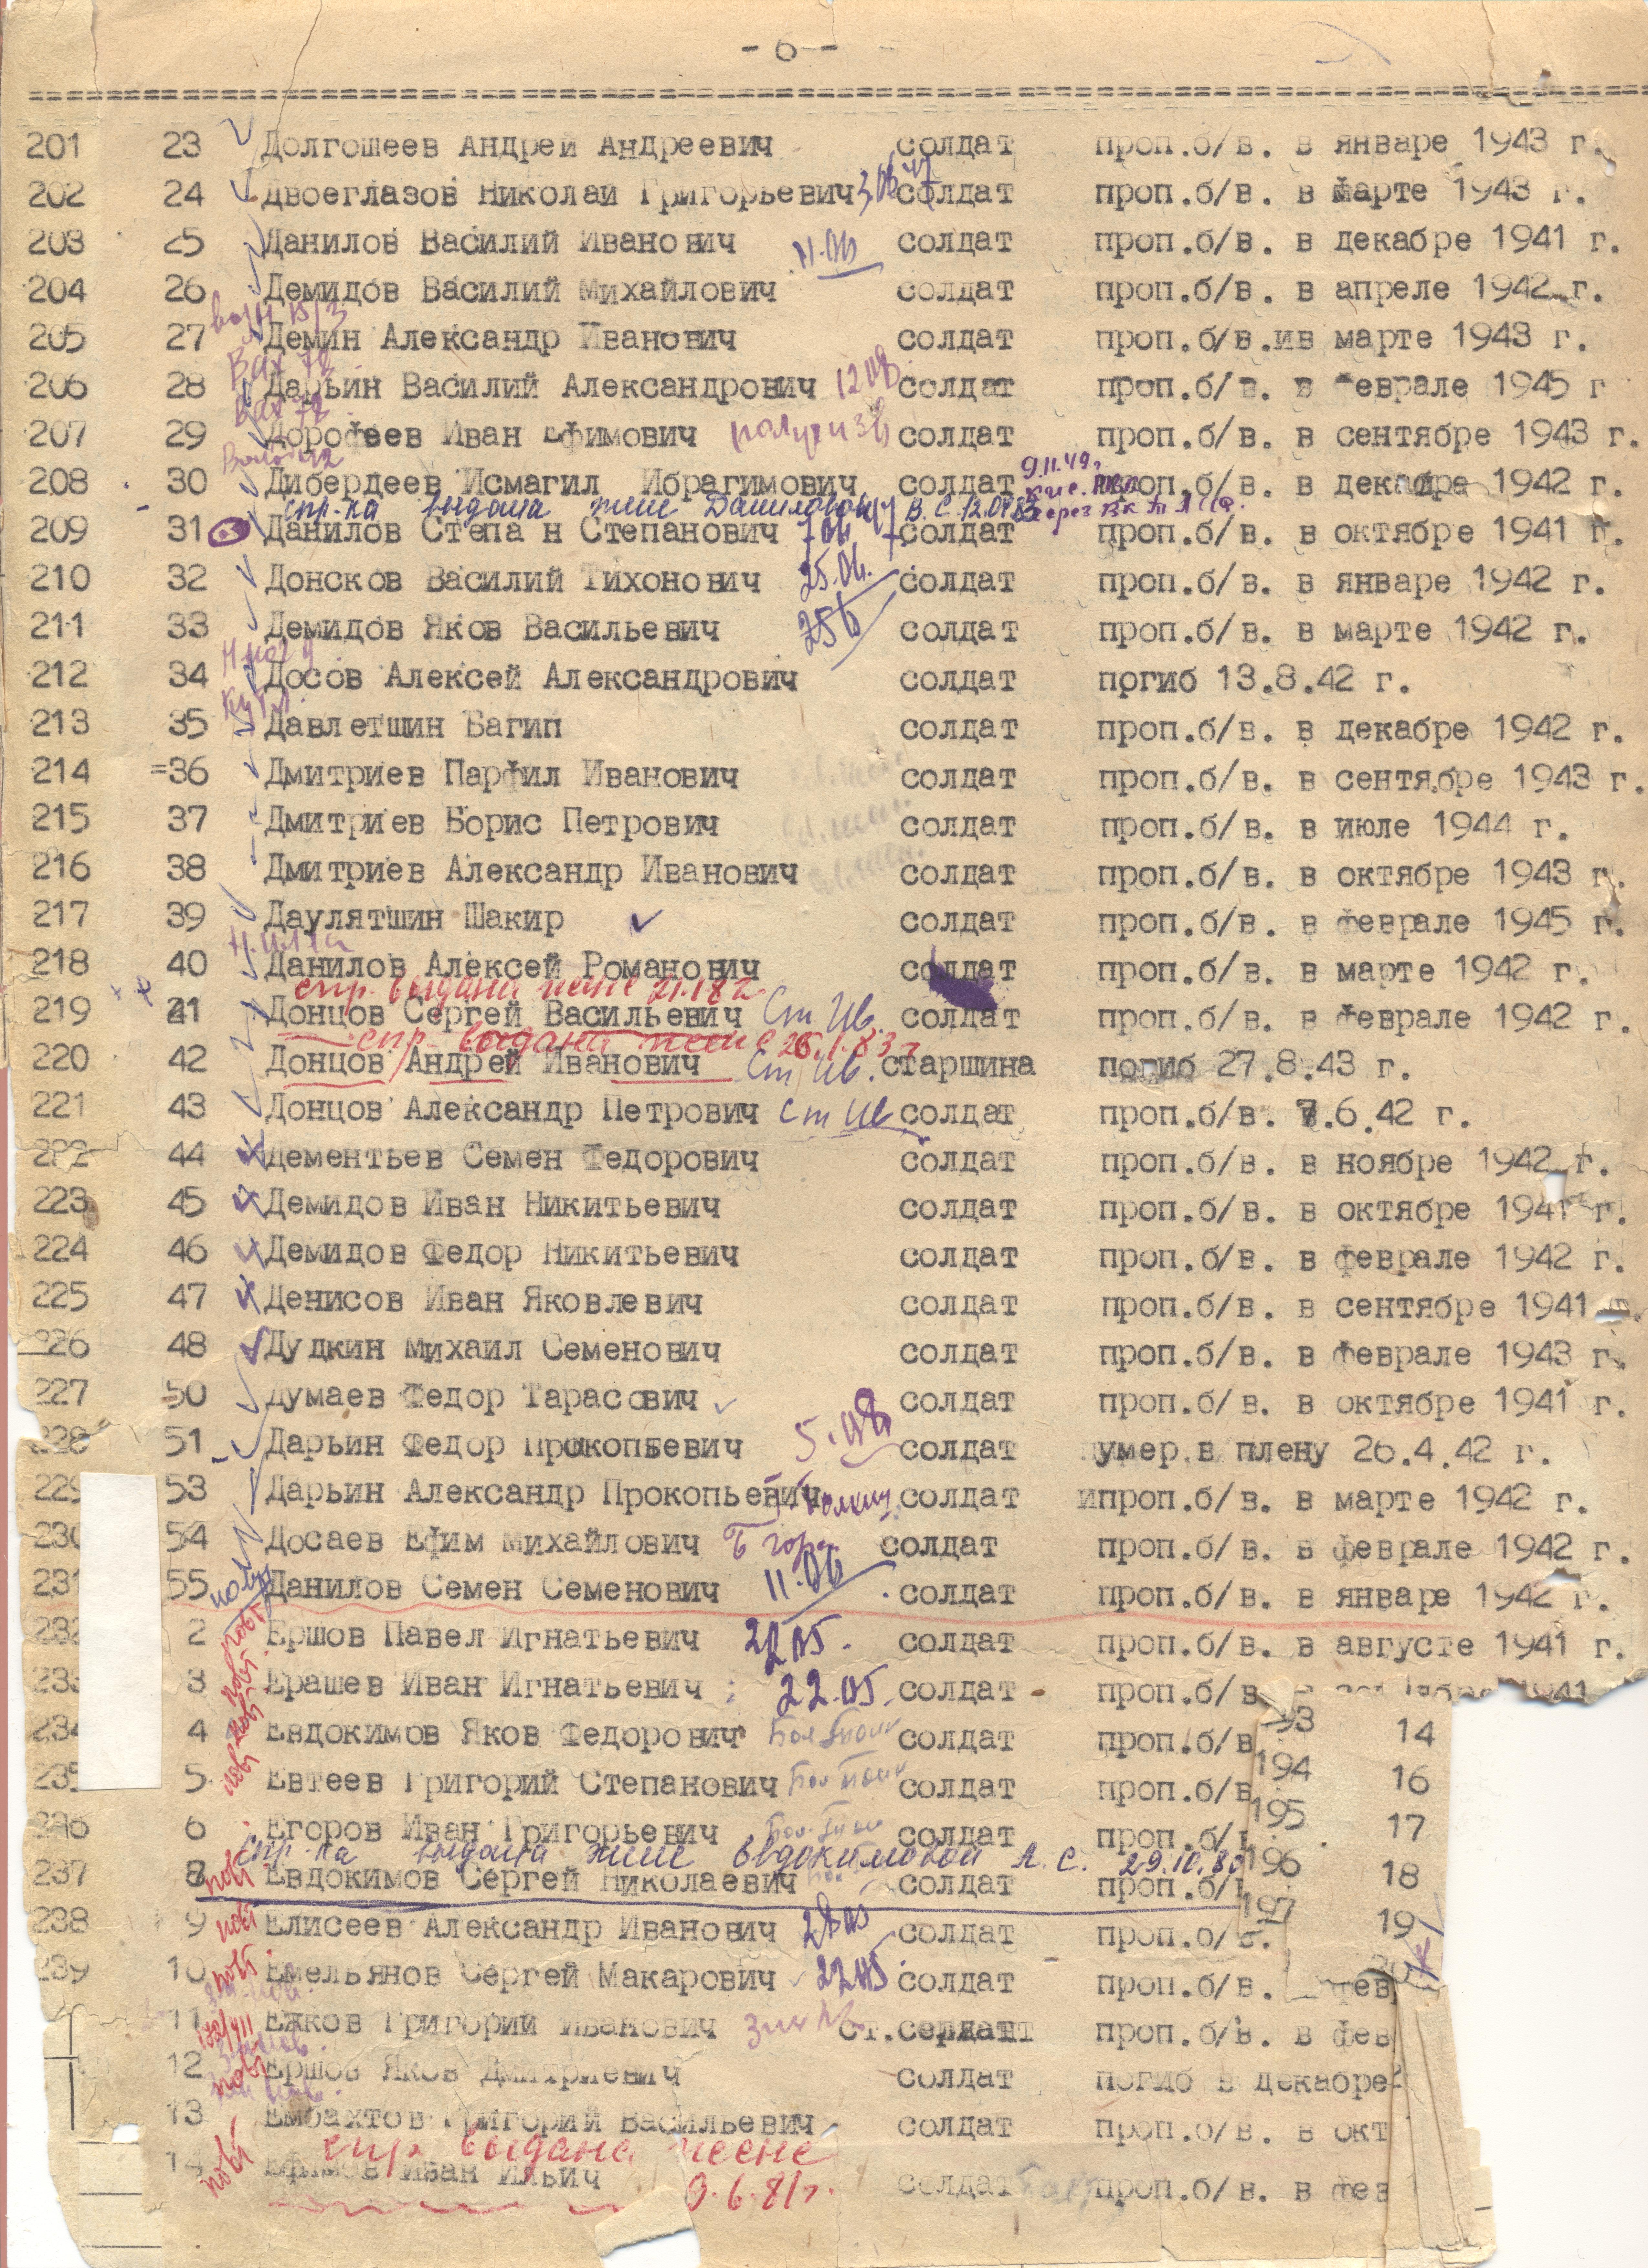 - 6 -
201 23 Долгошеев Андрей Андреевич солдат проп.б/в. в январе 1943 г.
202 24 Двоеглазов Николай Григорьевич солдат проп.б/в. в марте 1943 г.
203 25 Данилов Василий Иванович 11.06 солдат проп.б/в. в декабре 1941 г.
204 26 Демидов Василий Михайлович солдат проп.б/в. в апреле 1942 г.
205 27 Демин Александр Иванович солдат проп.б/в.ив марте 1943 г.
206 28 Дарьин Василий Александрович солдат проп.б/в. в феврале 1945 г
207 29 Дорофеев Иван Ефимович солдат проп.б/в. в сентябре 1943 г.
208 30 Дибердеев Исмагил Ибрагимович солдат проп.б/в. в декабре 1942 г.
спр-ка выдана жене Даниловой В.С. 12.04.83
209 31 Данилов Степа н Степанович солдат проп.б/в. в октябре 1941 г.
210 32 Донсков Василий Тихонович 25.06. солдат проп.б/в. в январе 1942 г.
211 33 Демидов Яков Васильевич солдат проп.б/в. в марте 1942 г.
212 34 Досов Алексей Александрович солдат погиб 13.8.42 г.
213 35 Давлетшин Вагип солдат проп.б/в. в декабре 1942 г.
214 =36 Дмитриев Парфил Иванович солдат проп.б/в. в сентябре 1943 г.
215 37 Дмитриев Борис Петрович солдат проп.б/в. в июле 1944 г.
216 38 Дмитриев Александр Иванович солдат проп.б/в. в октябре 1943 г.
217 39 Даулятшин Шакир солдат проп.б/в. в феврале 1945 г.
218 40 Данилов Алексей Романович солдат проп.б/в. в марте 1942 г.
спр. выдана жене
219 41 Донцов Сергей Васильевич Ст Ив. солдат проп.б/в. в феврале 1942 г.
спр выдана жене 26.1.83 г
220 42 Донцов Андрей Иванович Ст Ив. старшина погиб 27.8.43 г.
221 43 Донцов Александр Петрович Ст Ив солдат проп.б/в. 7.6.42 г.
222 44 Дементьев Семен Федорович солдат проп.б/в. в ноябре 1942 г.
223 45 Демидов Иван Никитьевич солдат проп.б/в. в октябре 1941 г.
224 46 Демидов Федор Никитьевич солдат проп.б/в. в феврале 1942 г.
225 47 Денисов Иван Яковлевич солдат проп.б/в. в сентябре 1941
226 48 Дудкин Михаил Семенович солдат проп.б/в. в феврале 1943 г.
227 50 Думаев Федор Тарасович солдат проп.б/в. в октябре 1941 г.
228 51 Дарьин Федор Прокопьевич солдат умер в плену 26.4.42 г.
229 53 Дарьин Александр Прокопьевич солдат ипроп.б/в. в марте 1942 г.
230 54 Досаев Ефим Михайлович солдат проп.б/в. в феврале 1942 г.
231 55 Данилов Семен Семенович 11.06 солдат проп.б/в. в январе 1942 г.
232 2 Ершов Павел Игнатьевич 22.05. солдат проп.б/в. в августе 1941 г.
233 3 Ерашев Иван Игнатьевич 22.05. солдат проп.б/в
234 4 Евдокимов Яков Федорович солдат проп.б/в 193 14
235 5 Евтеев Григорий Степанович солдат проп.б/в 194 16
236 6 Егоров Иван Григорьевич солдат проп.б/ 195 17
спр-ка выдана жене Евдокимовой А.С. 29.10.
237 8 Евдокимов Сергей Николаевич солдат проп.б/ 196 18
238 9 Елисеев Александр Иванович солдат проп.б/в. 197 19
239 10 Емельянов Сергей Макарович 22.05 солдат проп.б/в. фев
11 Ежков Григорий Иванович ст.сержант проп.б/в. в фев
12 Ершов Яков Дмитриевич солдат погиб в декабре
13 Ембахтов Григорий Васильевич солдат проп.б/в. в окт
спр выдана жене
14 Ефимов Иван Ильич солдат проп.б/в. в фев
9.6.81г.